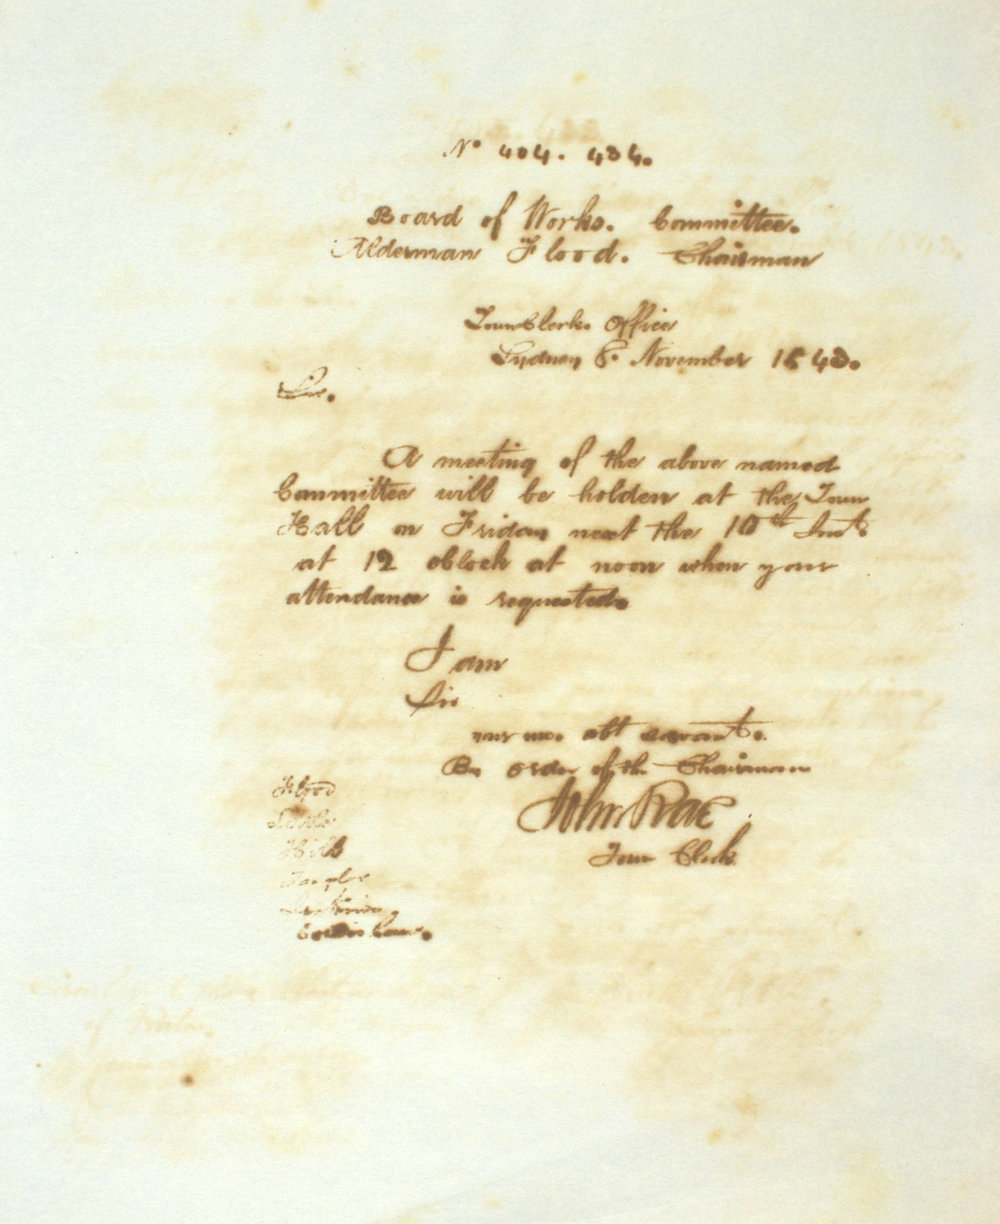 No 404. 434.
Board of Works. Committee.
Alderman Flood. Chairman
Town Clerks Office
Sydney 8. November 1843.
Sir.
A meeting of the above named
Committee will be holden at the Town
Hall on Friday next the 10th Inst
at 12 oClock at noon when your
attendance is requested.
I am
Sir
your mo. obt servant.
By order of the Chairman
John Rae
Town Clerk
Flood
Hill